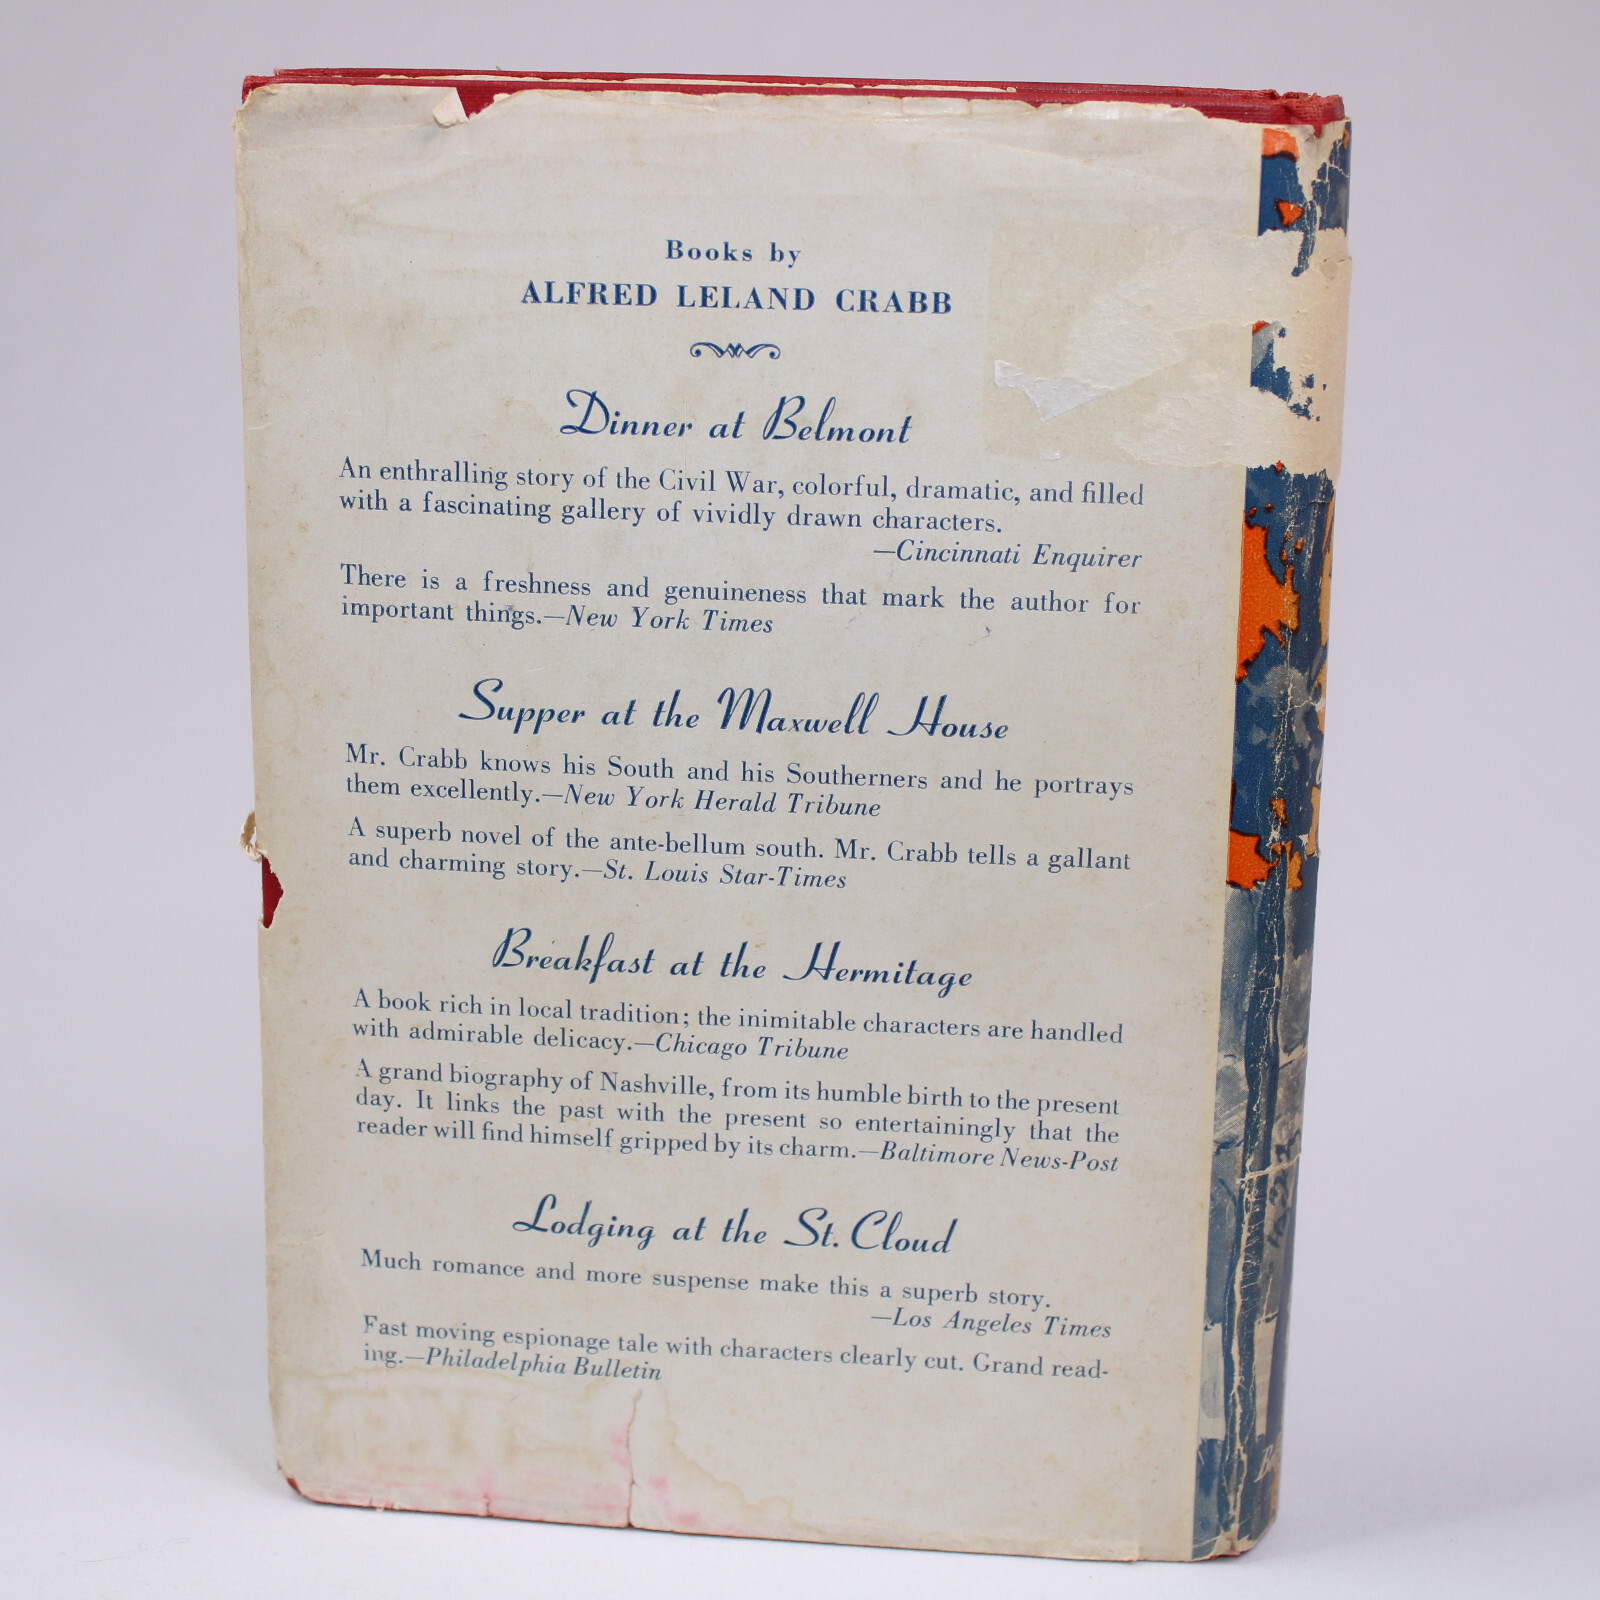 Books by
ALFRED LELAND CRABB
Dinner at Belmont
An enthralling story of the Civil War, colorful, dramatic, and filled
with a fascinating gallery of vividly drawn characters.
—Cincinnati Enquirer
There is a freshness and genuineness that mark the author for
important things.—New York Times
Supper at the Maxwell House
Mr. Crabb knows his South and his Southerners and he portrays
them excellently.—New York Herald Tribune
A superb novel of the ante-bellum south. Mr. Crabb tells a gallant
and charming story.—St. Louis Star-Times
Breakfast at the Hermitage
A book rich in local tradition; the inimitable characters are handled
with admirable delicacy.—Chicago Tribune
A grand biography of Nashville, from its humble birth to the present
day. It links the past with the present so entertainingly that the
reader will find himself gripped by its charm.—Baltimore News-Post
Lodging at the St. Cloud
Much romance and more suspense make this a superb story.
—Los Angeles Times
Fast moving espionage tale with characters clearly cut. Grand read-
ing.—Philadelphia Bulletin